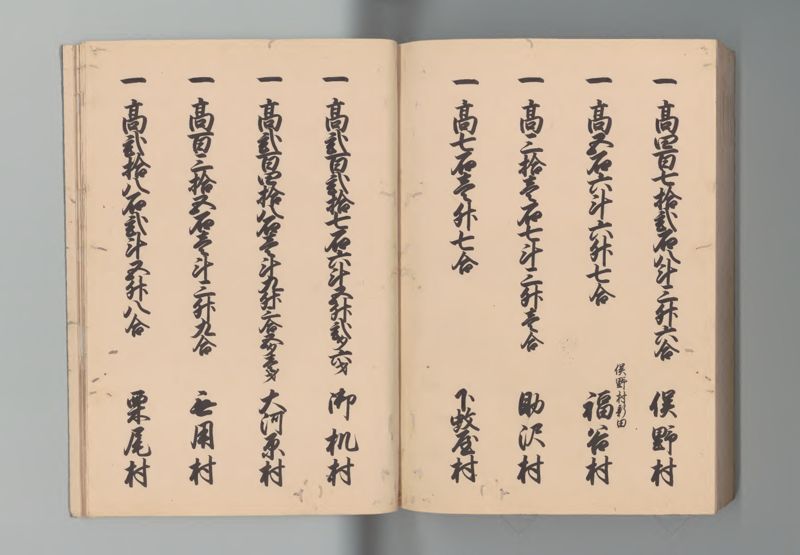 一 高四百七拾弐石八斗三升六合 俣野村
一 高五石六斗六升七合 俣野村新田 福谷村
一 高三拾壱石七斗三升壱合 助沢村
一 高七石壱升七合 下蚊屋村
一 高弐百弐拾七石六斗五升弐夕六才 御机村
一 高弐百四拾八石壱斗九升三合五夕壱才 大河原村
一 高百三拾五石壱斗三升九合 無用村
一 高弐拾八石弐斗五升八合 栗尾村